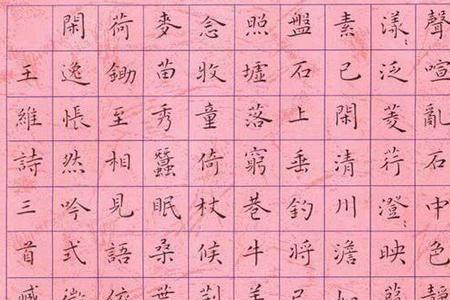 聲喧亂石中色靜
漾〻泛菱荇澄〻映葭
素已閑清川澹如
盤石上垂釣將已
照墟落窮巷牛羊
念牧童倚杖候荊
麥苗秀蠶眠桑葉
荷鋤至相見語依
閑逸悵然吟式微
王維詩三首